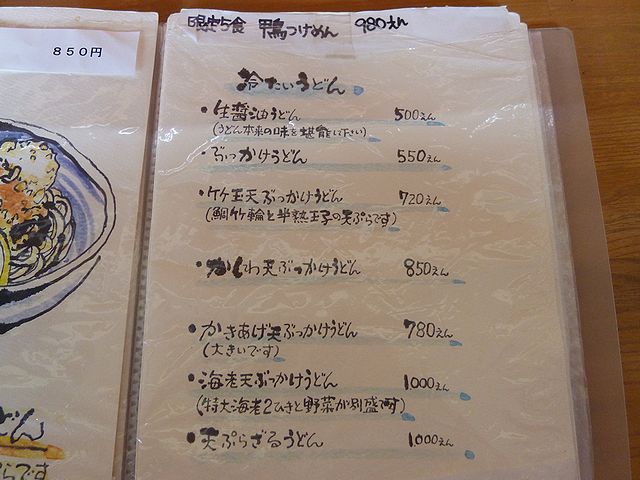 850円
限定5食 鴨つけめん 980えん
冷たいうどん
・生醤油うどん 500えん
(うどん本来の味を堪能下さい)
・ぶっかけうどん 550えん
・竹玉天ぶっかけうどん 720えん
(鯛竹輪と半熟玉子の天ぷらです)
・かしわ天ぶっかけうどん 850えん
・かきあげ天ぶっかけうどん 780えん
(大きいです)
・海老天ぶっかけうどん 1000えん
(特大海老2ひきと野菜が別盛です)
・天ぷらざるうどん 1000えん
どん
らです